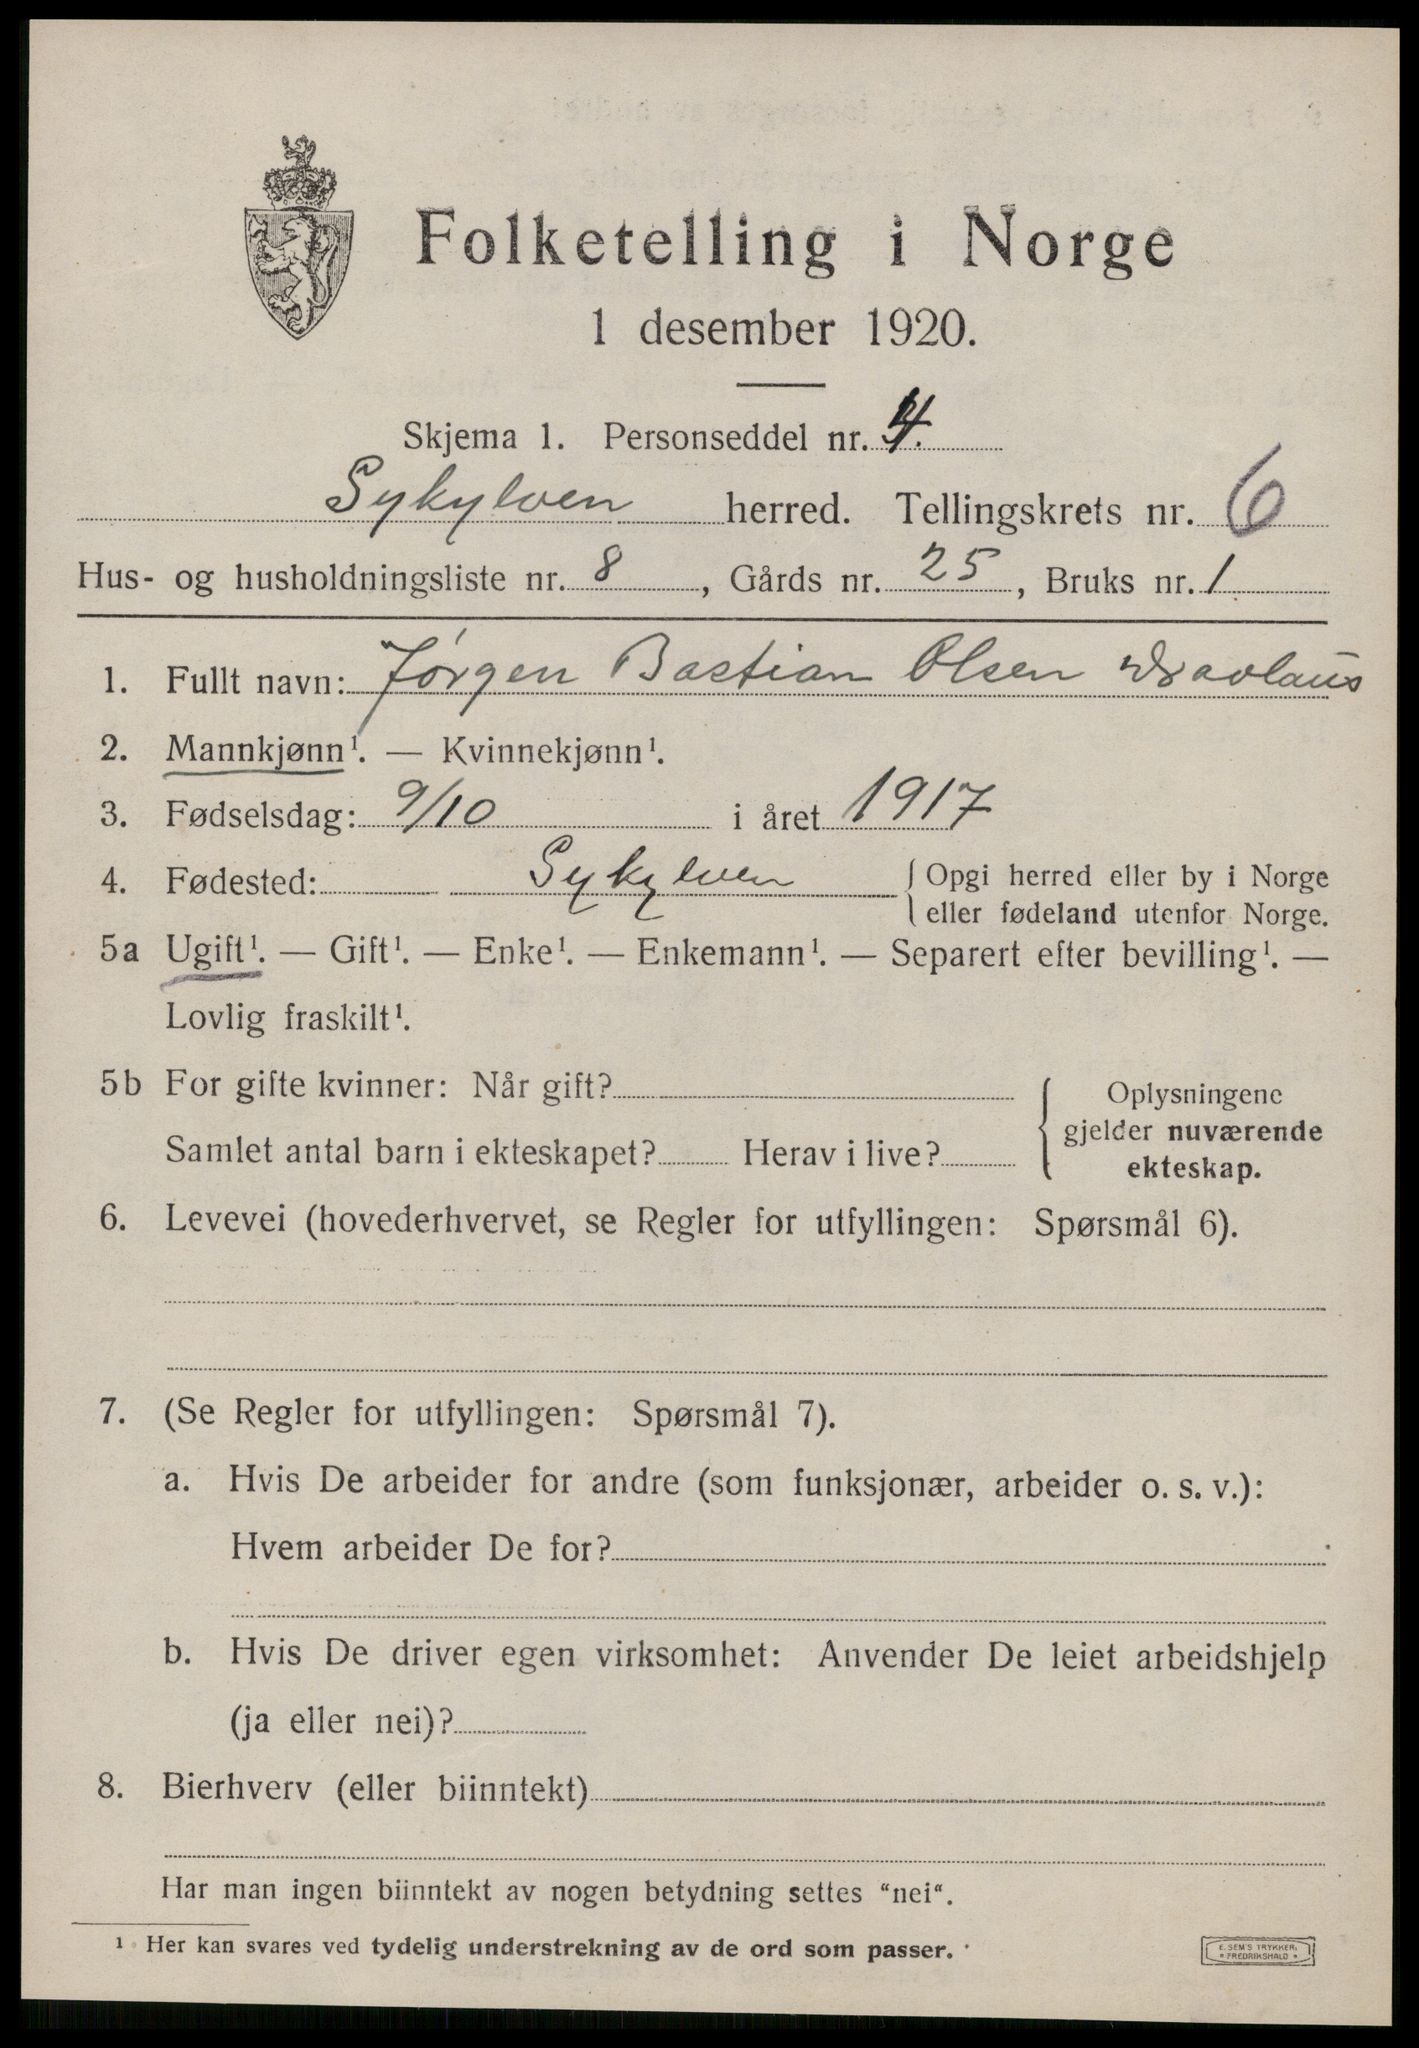 Folketelling i Norge
1 desember 1920.
Skjema 1. Personseddel nr. 4.
Sykylven herred. Tellingskrets nr. 6
Hus- og husholdningsliste nr. 8, Gårds nr. 25, Bruks nr. 1
1. Fullt navn: Jørgen Bastian Olsen
2. Mannkjønn¹. — Kvinnekjønn¹.
3. Fødselsdag: 9/10 i året 1917
4. Fødested: Sykylven { Opgi herred eller by i Norge
eller fødeland utenfor Norge.
5a Ugift¹. — Gift¹. — Enke¹. — Enkemann¹. — Separert efter bevilling¹. —
Lovlig fraskilt¹.
5b For gifte kvinner: Når gift?
Samlet antal barn i ekteskapet? Herav i live?
{ Oplysningene
gjelder nuværende
ekteskap.
6. Levevei (hovederhvervet, se Regler for utfyllingen: Spørsmål 6).
7. (Se Regler for utfyllingen: Spørsmål 7).
a. Hvis De arbeider for andre (som funksjonær, arbeider o. s. v.):
Hvem arbeider De for?
b. Hvis De driver egen virksomhet: Anvender De leiet arbeidshjelp
(ja eller nei)?
8. Bierhverv (eller biinntekt)
Har man ingen biinntekt av nogen betydning settes “nei“.
¹ Her kan svares ved tydelig understrekning av de ord som passer.
E. SEM'S TRYKKERI
* FREDRIKSHALD *